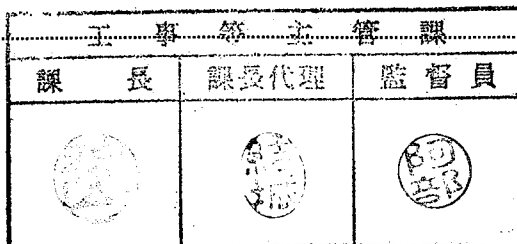 工事等主管課
課長 課長代理 監督員
阿部